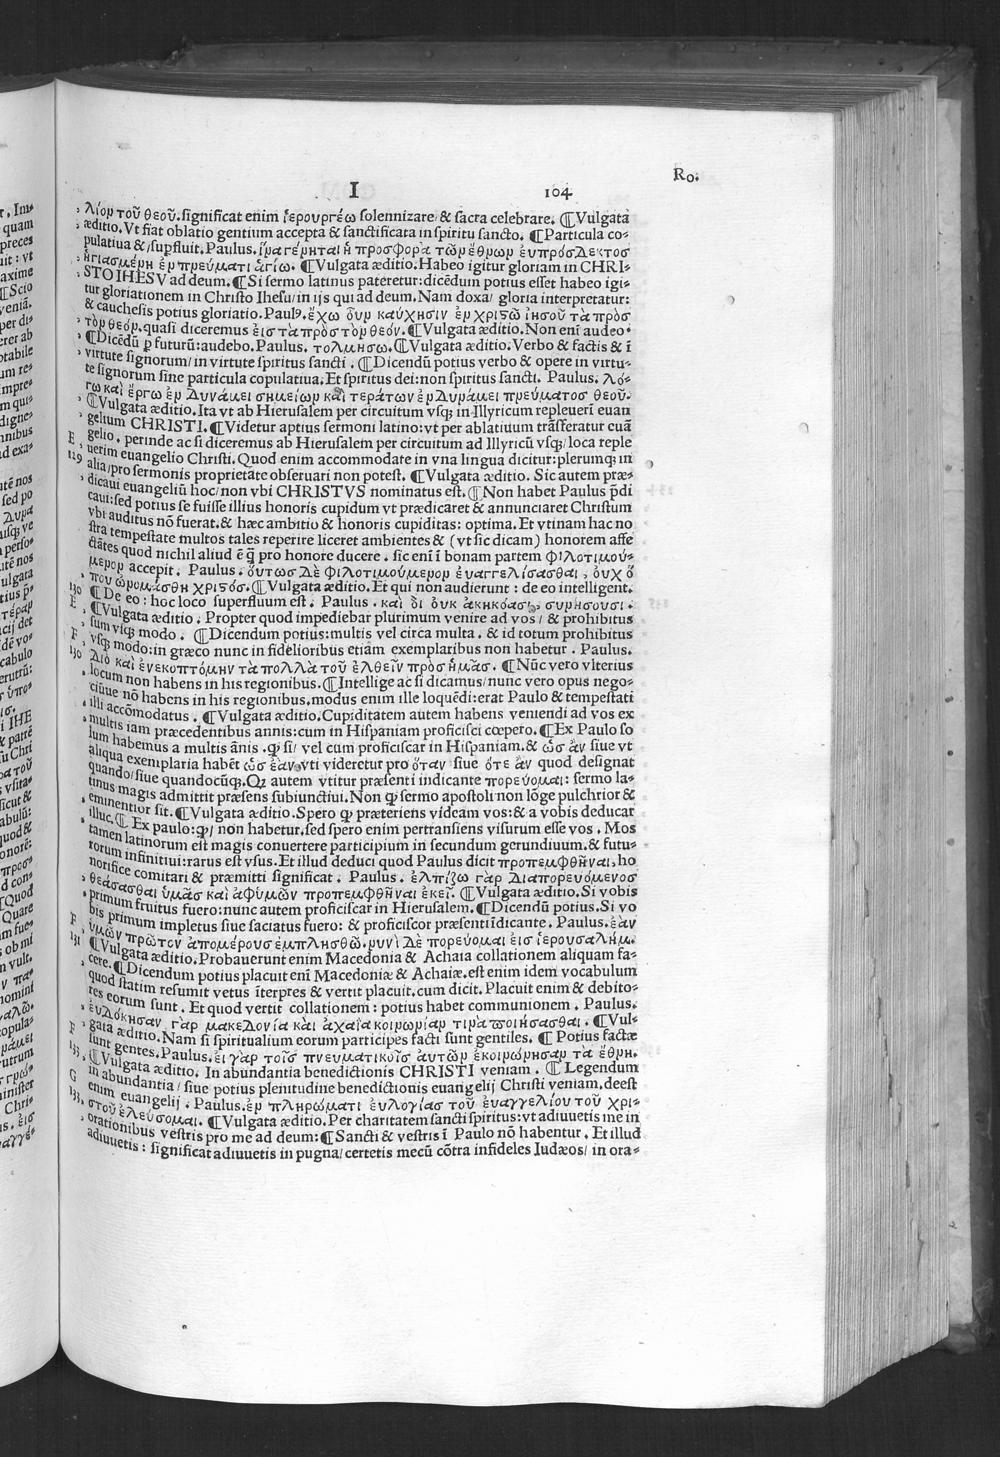 I 104 Ro.
λίον τοῦ θεοῦ. significat enim ἱερουργέω solennizare/ & sacra celebrare. ¶Vulgata
æditio. Vt fiat oblatio gentium accepta & sanctificata in spiritu sancto. ¶Particula co-
pulatiua &/ supfluit. Paulus. ἵνα γένηται ἡ προσφορὰ τῶν ἐθνων ἐυπρόσδεκτοσ
ἡγιασμένη ἐν πνεύματι ἁγίω. ¶Vulgata æditio. Habeo igitur gloriam in CHRI-
STO IHESV ad deum. ¶Si sermo latinus pateretur: dicēdum potius esset habeo igi-
tur gloriationem in Christo Ihesu/ in ijs qui ad deum. Nam doxa/ gloria interpretatur:
& cauchesis potius gloriatio. Paulꝰ. ἔχω ὀυν καύχησιν ἐν χριϛῶ ἰησοῦ τὰ πρὸσ
τὸν θεόν. quasi diceremus ἐισ τὰ πρὸσ τὸν θεόν. ¶Vulgata æditio. Non enī audeo.
¶Dicēdū p futurū: audebo. Paulus. τολμησω. ¶Vulgata æditio. Verbo & factis & ī
virtute signorum/ in virtute spiritus sancti. ¶Dicendum potius verbo & opere in virtu-
te signorum sine particula copulatiua. Et spiritus dei: non spiritus sancti. Paulus. λό-
γω καὶ ἔργω ἐν δυνάμει σημείων καὶ τεράτων ἐν δυνάμει πνεύματοσ θεοῦ.
¶Vulgata æditio. Ita vt ab Hierusalem per circuitum vsqꝫ in Illyricum repleuerī euan
gelium CHRISTI. ¶Videtur aptius sermoni latino: vt per ablatiuum trāsferatur euā
E gelio. perinde ac si diceremus ab Hierusalem per circuitum ad Illyricū vsqꝫ/ loca reple
129 uerim euangelio Christi. Quod enim accommodate in vna lingua dicitur: plerumqꝫ in
alia/ pro sermonis proprietate obseruari non potest. ¶Vulgata æditio. Sic autem præ-
dicaui euangeliū hoc/ non vbi CHRISTVS nominatus est. ¶Non habet Paulus p̄di
caui: sed potius se fuisse illius honoris cupidum vt prædicaret & annunciaret Christum
vbi auditus nō fuerat. & hæc ambitio & honoris cupiditas: optima. Et vtinam hac no
stra tempestate multos tales reperire liceret ambientes & (vt sic dicam) honorem affe
ctātes quod nichil aliud ē q̄ pro honore ducere. sic enī ī bonam partem φιλοτιμού-
μενον accepit. Paulus. ὁυτωσ δὲ φιλοτιμούμενον ἐυαγγελίσασθαι, ὀυχ ὅ
που ὠνομάσθη χριϛόσ. ¶Vulgata æditio. Et qui non audierunt: de eo intelligent.
130 ¶De eo: hoc loco superfluum est. Paulus. καὶ ὁι ὀυκ ἀκηκόασι, συνήσουσι.
E ¶Vulgata æditio. Propter quod impediebar plurimum venire ad vos/ & prohibitus
sum vsqꝫ modo. ¶Dicendum potius: multis vel circa multa. & id totum prohibitus
F vsqꝫ modo: in græco nunc in fidelioribus etiam exemplaribus non habetur. Paulus.
130 Διὸ καὶ ἐνεκοπτόμην τὰ πολλὰ τοῦ ἐλθεῖν πρὸσ ἡμᾶσ. ¶Nūc vero vlterius
locum non habens in his regionibus. ¶Intellige ac si dicamus/ nunc vero opus nego-
ciūue nō habens in his regionibus. modus enim ille loquēdi: erat Paulo & tempestati
illi accōmodatus. ¶Vulgata æditio. Cupiditatem autem habens veniendi ad vos ex
multis iam præcedentibus annis: cum in Hispaniam proficisci cœpero. ¶Ex Paulo so
lum habemus a multis ānis. qꝫ si/ vel cum proficiscar in Hispaniam. & ὡσ ἀν siue vt
aliqua exemplaria habēt ὡσ ἐὰν, vti videretur pro ὅταν siue ὅτε ἀν quod designat
quando/ siue quandocūqꝫ. Qꝫ autem vtitur præsenti indicante πορεύομαι: sermo la-
tinus magis admittit præsens subiunctiui. Non qꝫ sermo apostoli non lōge pulchrior &
eminentior sit. ¶Vulgata æditio. Spero qꝫ præteriens videam vos: & a vobis deducar
illuc. ¶Ex paulo: qꝫ/ non habetur. sed spero enim pertransiens visurum esse vos. Mos
tamen latinorum est magis conuertere participium in secundum gerundiuum. & futu-
rorum infinitiui: rarus est vsus. Et illud deduci quod Paulus dicit προπεμφθῆναι, ho
norifice comitari & præmitti significat. Paulus. ἐλπίζω γὰρ διαπορευόμενοσ
θεάσασθαι ὑμᾶσ καὶ ἀφ᾽υμῶν προπεμφθῆναι ἐκεῖ. ¶Vulgata æditio. Si vobis
primum fruitus fuero: nunc autem proficiscar in Hierusalem. ¶Dicendū potius. Si vo
bis primum impletus siue saciatus fuero: & proficiscor præsenti īdicante. Paulus. ἐὰν
F ὑμῶν πρῶτον ἀπομέρουσ ἐμπλησθῶ. νυνὶ δὲ πορεύομαι ἐισ ἱερουσαλήμ.
131 ¶Vulgata æditio. Probauerunt enim Macedonia & Achaia collationem aliquam fa-
cere. ¶Dicendum potius placuit enī Macedoniæ & Achaiæ. est enim idem vocabulum
quod statim resumit vetus īterpres & vertit placuit. cum dicit. Placuit enim & debito-
res eorum sunt. Et quod vertit collationem: potius habet communionem. Paulus.
ἐυδόκησαν γὰρ μακεδονία καὶ ἀχαία κοινωνίαν τινὰ ποιήσασθαι. ¶Vul-
F gata æditio. Nam si spiritualium eorum participes facti sunt gentiles. ¶Potius factæ
sunt gentes. Paulus. ἐι γὰρ τοῖσ πνευματικοῖσ ἀυτῶν ἐκοινώνησαν τὰ ἔθνη.
133 ¶Vulgata æditio. In abundantia benedictionis CHRISTI veniam. ¶Legendum
in abundantia/ siue potius plenitudine benedictionis euangelij Christi veniam. deest
G enim euangelij. Paulus. ἐν πληρώματι ἐυλογίασ τοῦ ἐυαγγελίου τοῦ χρι-
133 στοῦ ἐλεύσομαι. ¶Vulgata æditio. Per charitatem sancti spiritus: vt adiuuetis me in
orationibus vestris pro me ad deum: ¶Sancti & vestris ī Paulo nō habentur. Et illud
adiuuetis: significat adiuuetis in pugna/ certetis mecū cōtra infideles Iudæos/ in ora-